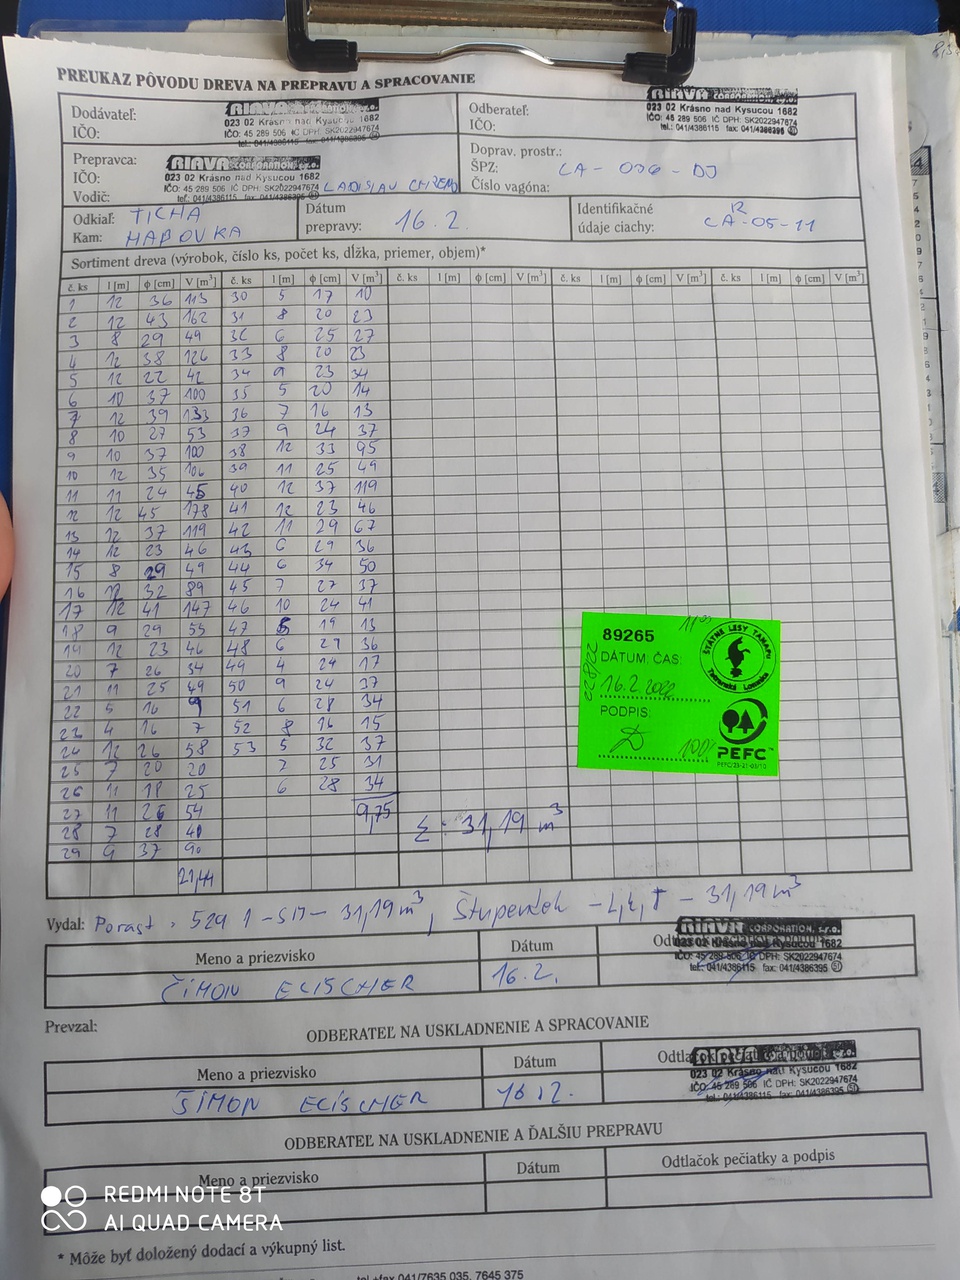 PREUKAZ PÔVODU DREVA NA PREPRAVU A SPRACOVANIE
Dodávateľ:
IČO:
RIAVA CORPORATION, s.r.o.
023 02 Krásno nad Kysucou 1682
IČO: 45 289 506 IČ DPH: SK2022947674
tel.: 041/4386115 fax: 041/4386395
Odberateľ:
IČO:
RIAVA CORPORATION, s.r.o.
023 02 Krásno nad Kysucou 1682
IČO: 45 289 506 IČ DPH: SK2022947674
tel.: 041/4386115 fax: 041/4386395
Prepravca:
IČO:
Vodič:
RIAVA CORPORATION, s.r.o.
023 02 Krásno nad Kysucou 1682
IČO: 45 289 506 IČ DPH: SK2022947674
tel.: 041/4386115 fax: 041/4386395
LADISLAV
Doprav. prostr.:
ŠPZ: CA - 006 - DJ
Číslo vagóna:
Odkiaľ: TICHA
Kam: HABOVKA
Dátum
prepravy: 16.2.
Identifikačné
údaje ciachy: CA-05-11
R
Sortiment dreva (výrobok, číslo ks, počet ks, dĺžka, priemer, objem)*
č. ks l [m] ϕ [cm] V [m³] č. ks l [m] ϕ [cm] V [m³] č. ks l [m] ϕ [cm] V [m³] č. ks l [m] ϕ [cm] V [m³] č. ks l [m] ϕ [cm] V [m³]
1 12 36 113 30 5 17 10
2 12 43 162 31 8 20 23
3 8 29 49 32 6 25 27
4 12 38 126 33 8 20 23
5 12 22 42 34 9 23 34
6 10 37 100 35 5 20 14
7 12 39 133 36 7 16 13
8 10 27 53 37 9 24 37
9 10 37 100 38 12 33 95
10 12 35 106 39 11 25 49
11 11 24 45 40 12 37 119
12 12 45 178 41 12 23 46
13 12 37 119 42 11 29 67
14 12 23 46 43 6 29 36
15 8 29 49 44 6 34 50
16 12 32 89 45 7 27 37
17 12 41 147 46 10 24 41
18 9 29 55 47 5 19 13
19 12 23 46 48 6 29 36
20 7 26 34 49 4 24 17
21 11 25 49 50 9 24 37
22 5 16 9 51 6 28 34
23 4 16 7 52 8 16 15
24 12 26 58 53 5 32 37
25 7 20 20 7 25 31
26 11 18 25 6 28 34
27 11 26 54 9,75
28 7 28 40 Σ: 31,19 m³
29 9 37 90
21,44
89265
11 00
DÁTUM: ČAS:
16.2.2022
PODPIS:
100%
ŠTÁTNE LESY TANAPU
Tatranská Lomnica
PEFC
Vydal: Porast 529 1 - SM - 31,19 m³, - 31,19 m³
Meno a priezvisko
Dátum
Odtlačok pečiatky a podpis
RIAVA CORPORATION, s.r.o.
023 02 Krásno nad Kysucou 1682
IČO: 45 289 506 IČ DPH: SK2022947674
tel.: 041/4386115 fax: 041/4386395
ŠIMON ECISCHER 16.2.
Prevzal:
ODBERATEĽ NA USKLADNENIE A SPRACOVANIE
Meno a priezvisko
Dátum
Odtlačok pečiatky a podpis
RIAVA CORPORATION, s.r.o.
023 02 Krásno nad Kysucou 1682
IČO: 45 289 506 IČ DPH: SK2022947674
tel.: 041/4386115 fax: 041/4386395
ŠIMON ECISCHER 16.2.
ODBERATEĽ NA USKLADNENIE A ĎALŠIU PREPRAVU
Meno a priezvisko
Dátum
Odtlačok pečiatky a podpis
* Môže byť doložený dodací a výkupný list.
tel.+fax 041/7635 035, 7645 375
REDMI NOTE 8T
AI QUAD CAMERA